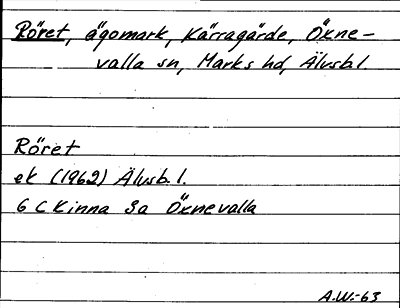 Röret, ägomark, Kärragärde, Öxne-
valla sn, Marks hd, Älvsb.l.
Röret
ek (1962) Älvsb. l.
6 C Kinna 3a Öxnevalla
A.W.-63